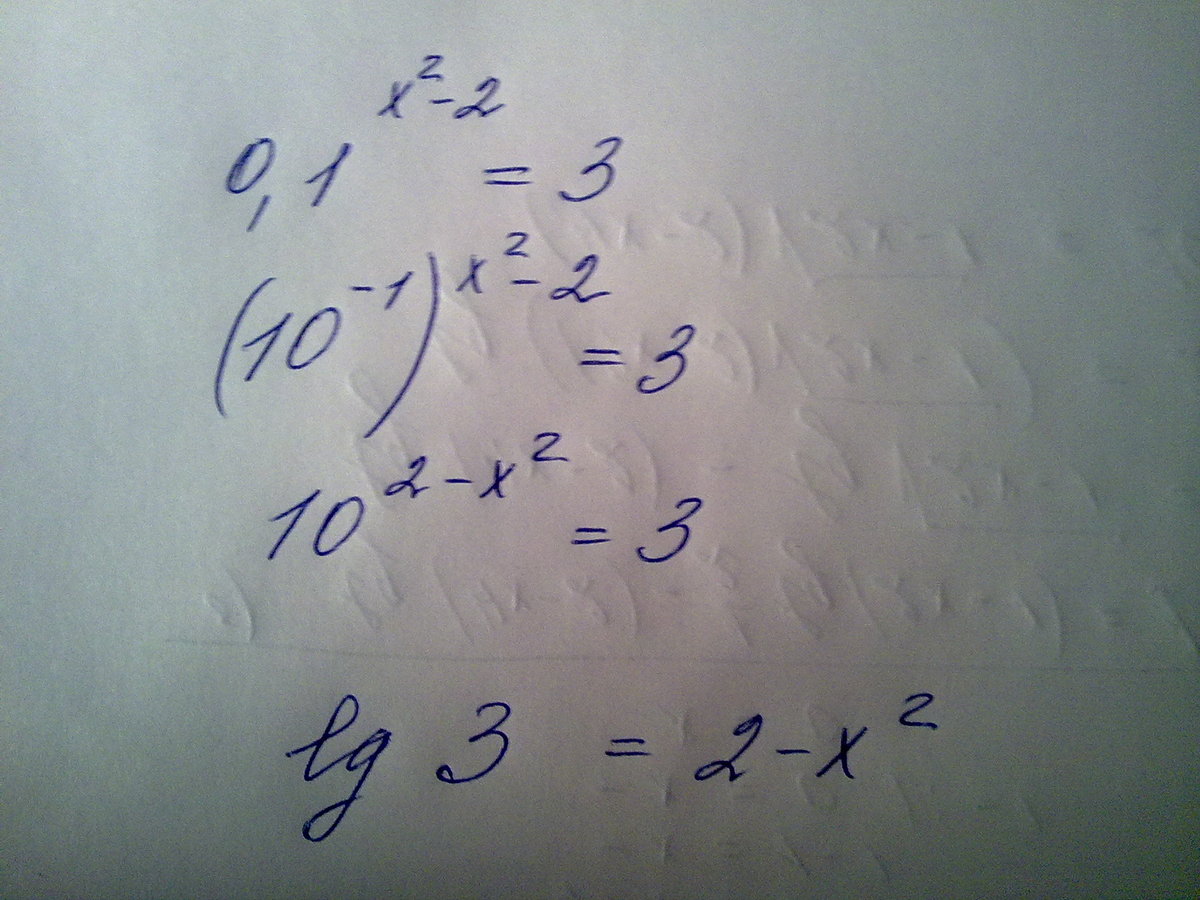 0,1^{x²-2} = 3
(10⁻¹)^{x²-2} = 3
10^{2-x²} = 3
lg 3 = 2-x²